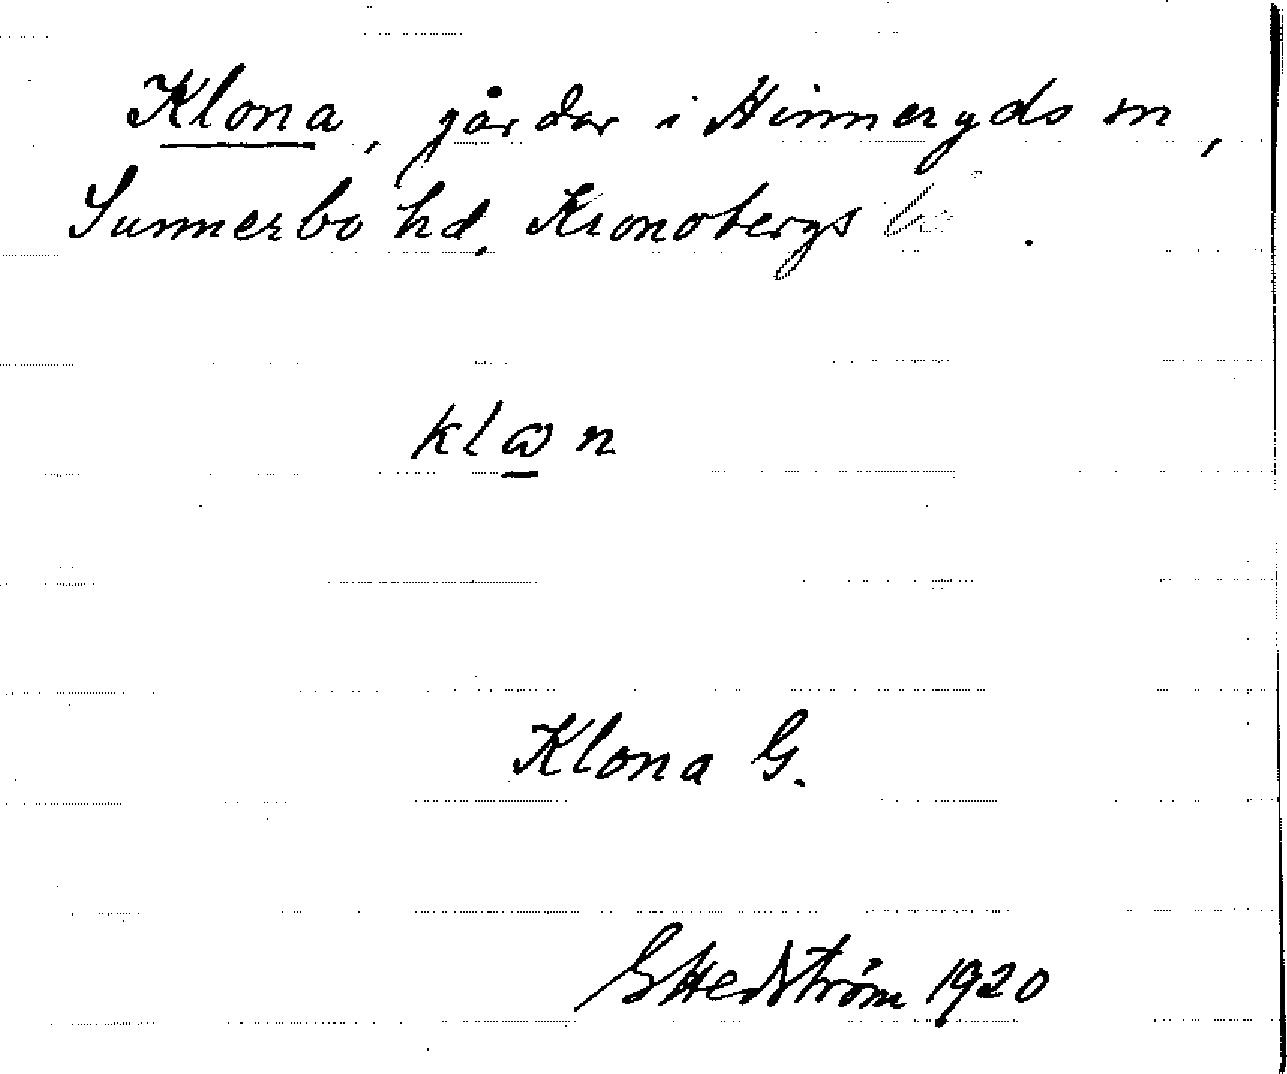 Klona, gårdar i Hinneryds sn,
Sunnerbo hd, Kronobergs
klɷn
Klona G.
G Hedström 1920